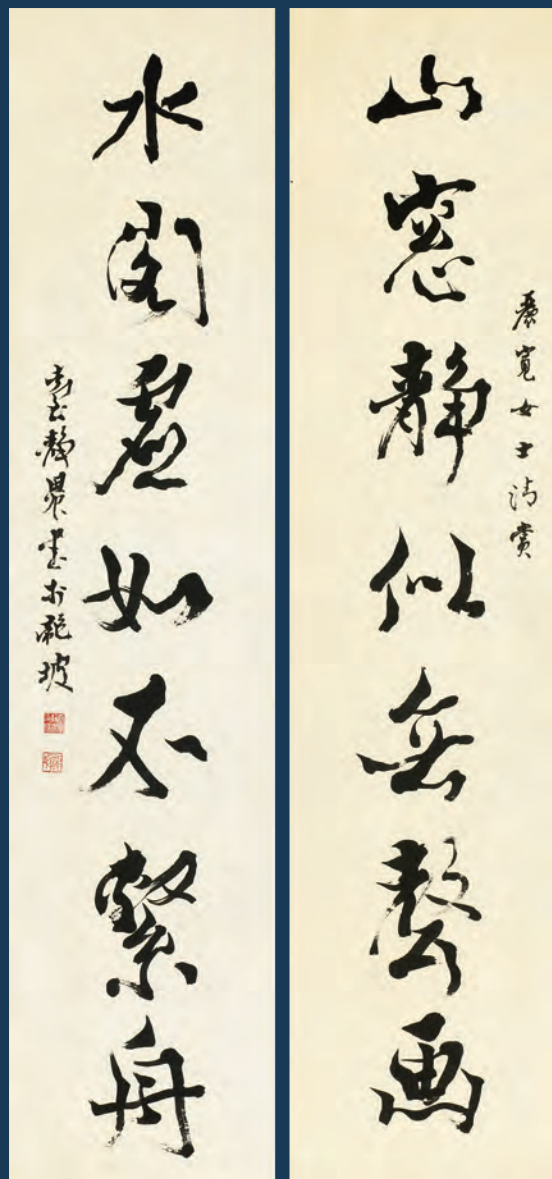 山窓靜似無聲画
寬女士清賞
水閣虛如不繫舟
靜農書於龍坡